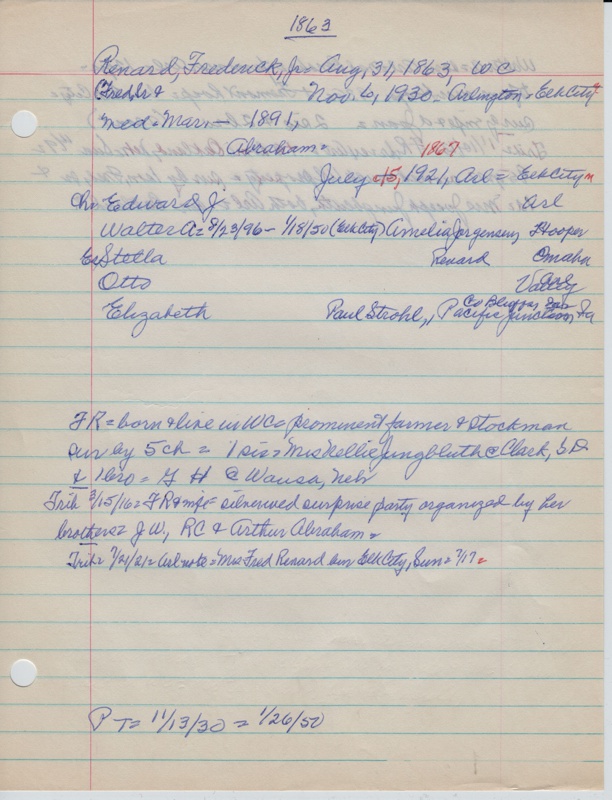 1863
Renard, Frederick, Jr = Aug, 31, 1863, W.C
(Fred Sr &                Nov. 6, 1930 - Arlington = Elk City
med = Mar, - 1891,
Abraham =          1867
July 15, 1921, Arl = Elk City
Ch = Edward J.          Arl
Walter A = 8/23/96 - 1/18/50 (Elk City) Amelia Jorgensen, Hooper
Stella          Renard          Omaha
Otto          Valley
Elizabeth          Paul Strohl, Pacific Junction, Ia
Co Bluffs
FR = born & live in WC = prominent farmer & stockman
sur by 5 ch = 1 sis = Mrs Nellie Jungbluth @ Clark, S.D
& 1 bro = G H @ Wausa, Neb
Trib 3/15/16 = FR & wife = silverwed surprise party organized by her
brothers = J W, RC & Arthur Abraham =
Trib = 7/21/21 = Arl note = Mrs Fred Renard bur Elk City, Sun = 7/17 =
P T = 11/13/30 = 1/26/50